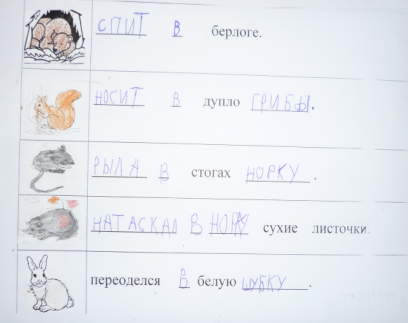 СПИТ В берлоге.
НОСИТ В дупло ГРИБЫ.
РЫЛА В стогах НОРКУ.
НАТАСКАЛ В НОРКУ сухие листочки.
переоделся В белую ШУБКУ.